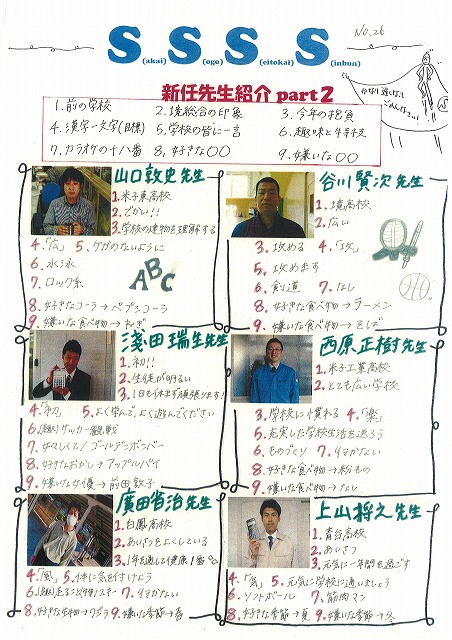 No.26
S S S S
(akai) (ogo) (eitokai) (inbun)
新任先生紹介 part 2
かなり遅くなって
ごめんなさい!!
1. 前の学校 2. 境総合の印象 3. 今年の抱負
4. 漢字一文字(目標) 5. 学校の皆に一言 6. 趣味と特技
7. カラオケの十八番 8. 好きな○○ 9. 嫌いな○○
山口敦史先生
1. 米子東高校
2. でかい!!
3. 学校の建物を理解する
4. 「広」 5. ケガのないように
6. 水泳
7. ロック系
8. 好きなコーラ→ペプシコーラ
9. 嫌いな食べ物→ねぎ
ABC
谷川賢次先生
1. 境高校
2. 広い
3. 攻める 4. 「攻」
5. 攻めます
6. 剣道 7. なし
8. 好きな食べ物→ラーメン
9. 嫌いな食べ物→そば
淺田瑞生先生
1. 初!!
2. 生徒が明るい
3. 1日も休まず頑張ります!
4. 「初」 5. よく学んで、よく遊んでください
6. (趣味)サッカー観戦
7. 女々しくて/ゴールデンボンバー
8. 好きなお菓し→アップルパイ
9. 嫌いな女優→前田敦子
西原正樹先生
1. 米子工業高校
2. とても広い学校
3. 学校に慣れる 4. 「楽」
5. 充実した学校生活を送ろう
6. ものづくり 7. 何かない
8. 好きな食べ物→粉もの
9. 嫌いな食べ物→なし
廣田省治先生
1. 白鳳高校
2. あいさつをよくしている
3. 1年を通して健康1番
4. 「風」 5. 体に気を付けよう
7. 何かない
8. 好きな生物→クジラ 9. 嫌いな季節→春
上山将之先生
1. 青谷高校
2. あいさつ
3. 元気に一年間を過ごす
4. 「気」 5. 元気に学校に通いましょう
6. ソフトボール 7. 筋肉マン
8. 好きな季節→夏 9. 嫌いな季節→冬